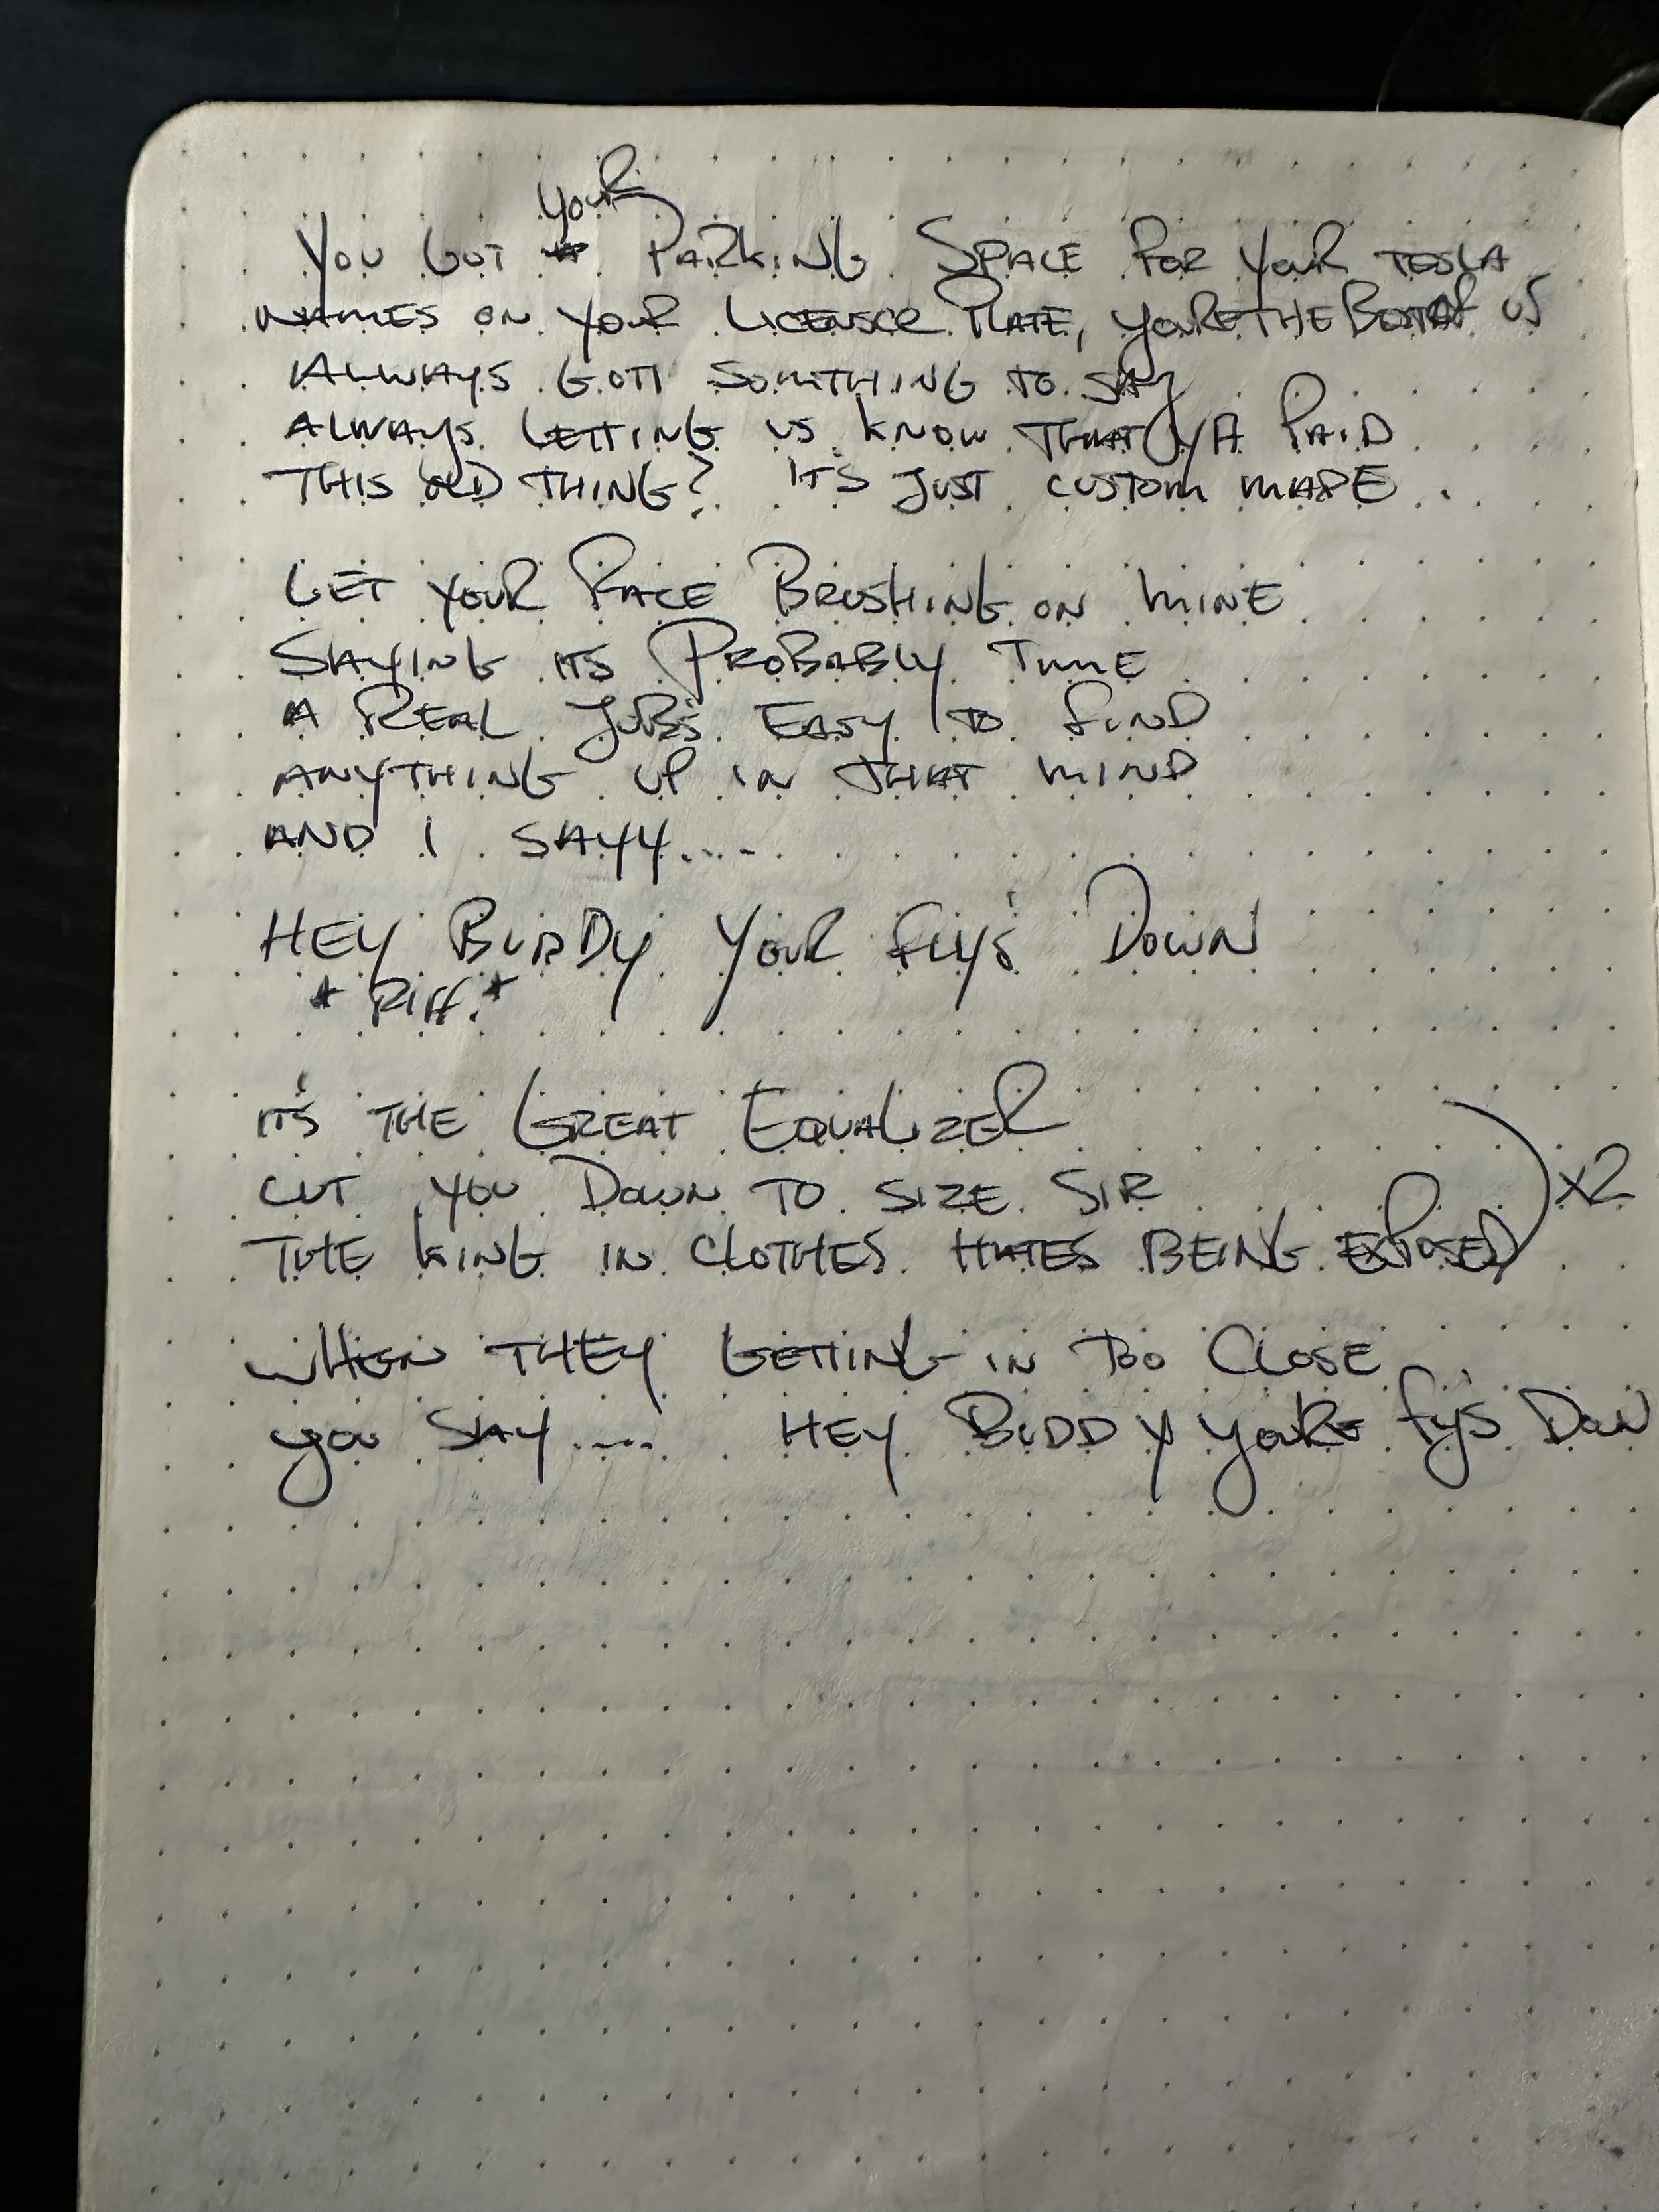 YOU GOT YOUR PARKING SPACE FOR YOUR TESLA
NAMES ON YOUR LICENSCE PLATE, YOURE THE BEST OF US
ALWAYS GOTT SOMTHING TO SAY
ALWAYS LETTING US KNOW THAT YA PAID
THIS OLD THING? IT'S JUST CUSTOM MADE
GET YOUR FACE BRUSHING ON MINE
SAYING ITS PROBABLY TIME
A REAL JOB'S EASY TO FIND
ANYTHING UP IN THAT MIND
AND I SAYY....
HEY BUDDY YOUR FLY'S DOWN
* RIFF. *
IT'S THE GREAT EQUALIZER
CUT YOU DOWN TO SIZE SIR
THE KING IN CLOTHES HATES BEING EXPOSED
X2
WHEN THEY GETTING IN TOO CLOSE
YOU SAY.... HEY BUDDY YOURE FY'S DOWN